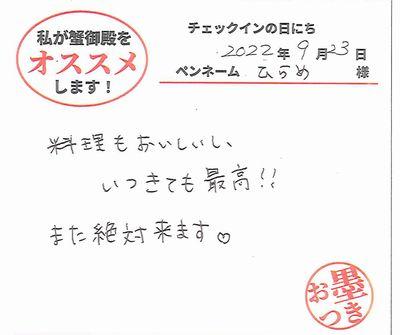 私が蟹御殿を
オススメ
します！
チェックインの日にち
2022年9月23日
ペンネーム ひらめ 様
料理もおいしいし、
いつきても最高!!
また絶対来ます♡
お墨つき